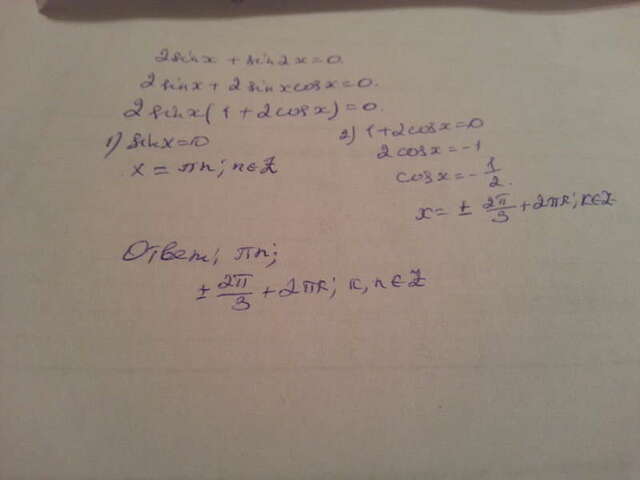 2sinx + sin2x=0.
2sinx + 2sinxcosx=0.
2sinx(1+2cosx)=0.
1) sinx=0
x = πn; n∈Z
2) 1+2cosx=0
2cosx=-1
cosx=-1/2.
x=± 2π/3 +2πk; k∈Z.
Ответ; πn;
± 2π/3 + 2πk; k,n∈Z